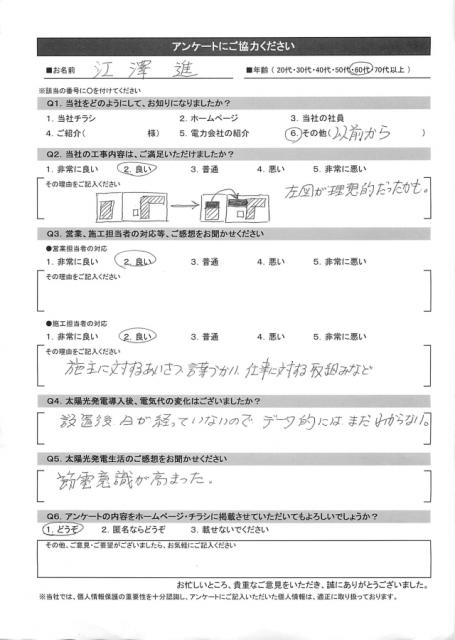 アンケートにご協力ください
■お名前 江澤 進 ■年齢（20代・30代・40代・50代・60代・70代以上）
※該当の番号に〇を付けてください
Q1. 当社をどのようにして、お知りになりましたか？
1. 当社チラシ 2. ホームページ 3. 当社の社員
4. ご紹介（ 様） 5. 電力会社の紹介 6. その他（以前から ）
Q2. 当社の工事内容は、ご満足いただけましたか？
1. 非常に良い 2. 良い 3. 普通 4. 悪い 5. 非常に悪い
その理由をご記入ください
左図が理想的だったかも。
Q3. 営業、施工担当者の対応等、ご感想をお聞かせください
●営業担当者の対応
1. 非常に良い 2. 良い 3. 普通 4. 悪い 5. 非常に悪い
その理由をご記入ください
●施工担当者の対応
1. 非常に良い 2. 良い 3. 普通 4. 悪い 5. 非常に悪い
その理由をご記入ください
施主に対するあいさつ、言葉づかい、仕事に対する取組みなど
Q4. 太陽光発電導入後、電気代の変化はございましたか？
設置後 日が経っていないので データ的には まだ わからない。
Q5. 太陽光発電生活のご感想をお聞かせください
節電意識が高まった。
Q6. アンケートの内容をホームページ・チラシに掲載させていただいてもよろしいでしょうか？
1. どうぞ 2. 匿名ならどうぞ 3. 載せないでください
その他、ご意見・ご要望がございましたら、お気軽にご記入ください
お忙しいところ、貴重なご意見をいただき、誠にありがとうございました。
※当社では、個人情報保護の重要性を十分認識し、アンケートにご記入いただいた個人情報は、適正に取り扱っております。